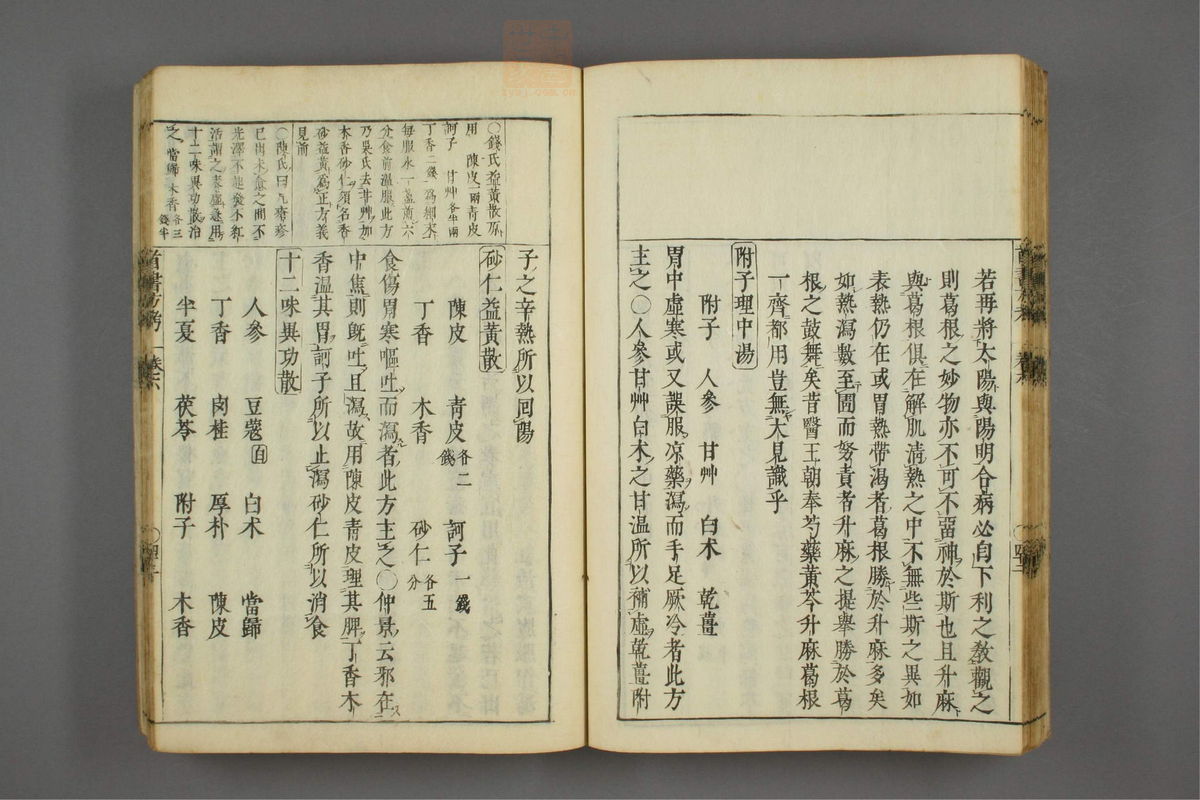 若再將太陽與陽明合病必自下利之敎觀之
則葛根之妙物亦不可不留神於斯也且升麻
與葛根俱在解肌清熱之中不無些斯之異如
表熱仍在或胃熱帶渴者葛根勝於升麻多矣
如熱瀉數至圊而努責者升麻之提舉勝於葛
根之鼓舞矣昔醫王朝奉芍藥黃芩升麻葛根
一齊都用豈無大見識乎
附子理中湯
附子 人參 甘艸 白朮 乾薑
胃中虛寒或又誤服凉藥瀉而手足厥冷者此方
主之○人參甘艸白朮之甘温所以補虛乾薑附
子之辛熱所以回陽
砂仁益黃散
陳皮 青皮各二錢 訶子一錢
丁香 木香 砂仁各五分
食傷胃寒嘔吐而瀉者此方主之○仲景云邪在
中焦則旣吐且瀉故用陳皮青皮理其脾丁香木
香温其胃訶子所以止瀉砂仁所以消食
十二味異功散
人參 豆蔻 白朮 當歸
丁香 肉桂 厚朴 陳皮
半夏 茯苓 附子 木香
○錢氏益黃散
用 陳皮一兩青皮
訶子 甘艸各半兩
丁香二錢 爲細末
每服水一盞煎六
分食前溫服此方
乃吳氏去甘艸加
木香砂仁須名香
砂益黃爲正方義
見前
○陳氏曰凡瘡疹
已出未愈之間不
光澤不起發不紅
活謂之表虛急用
十二味異功散治
之 當歸 木香各三錢半